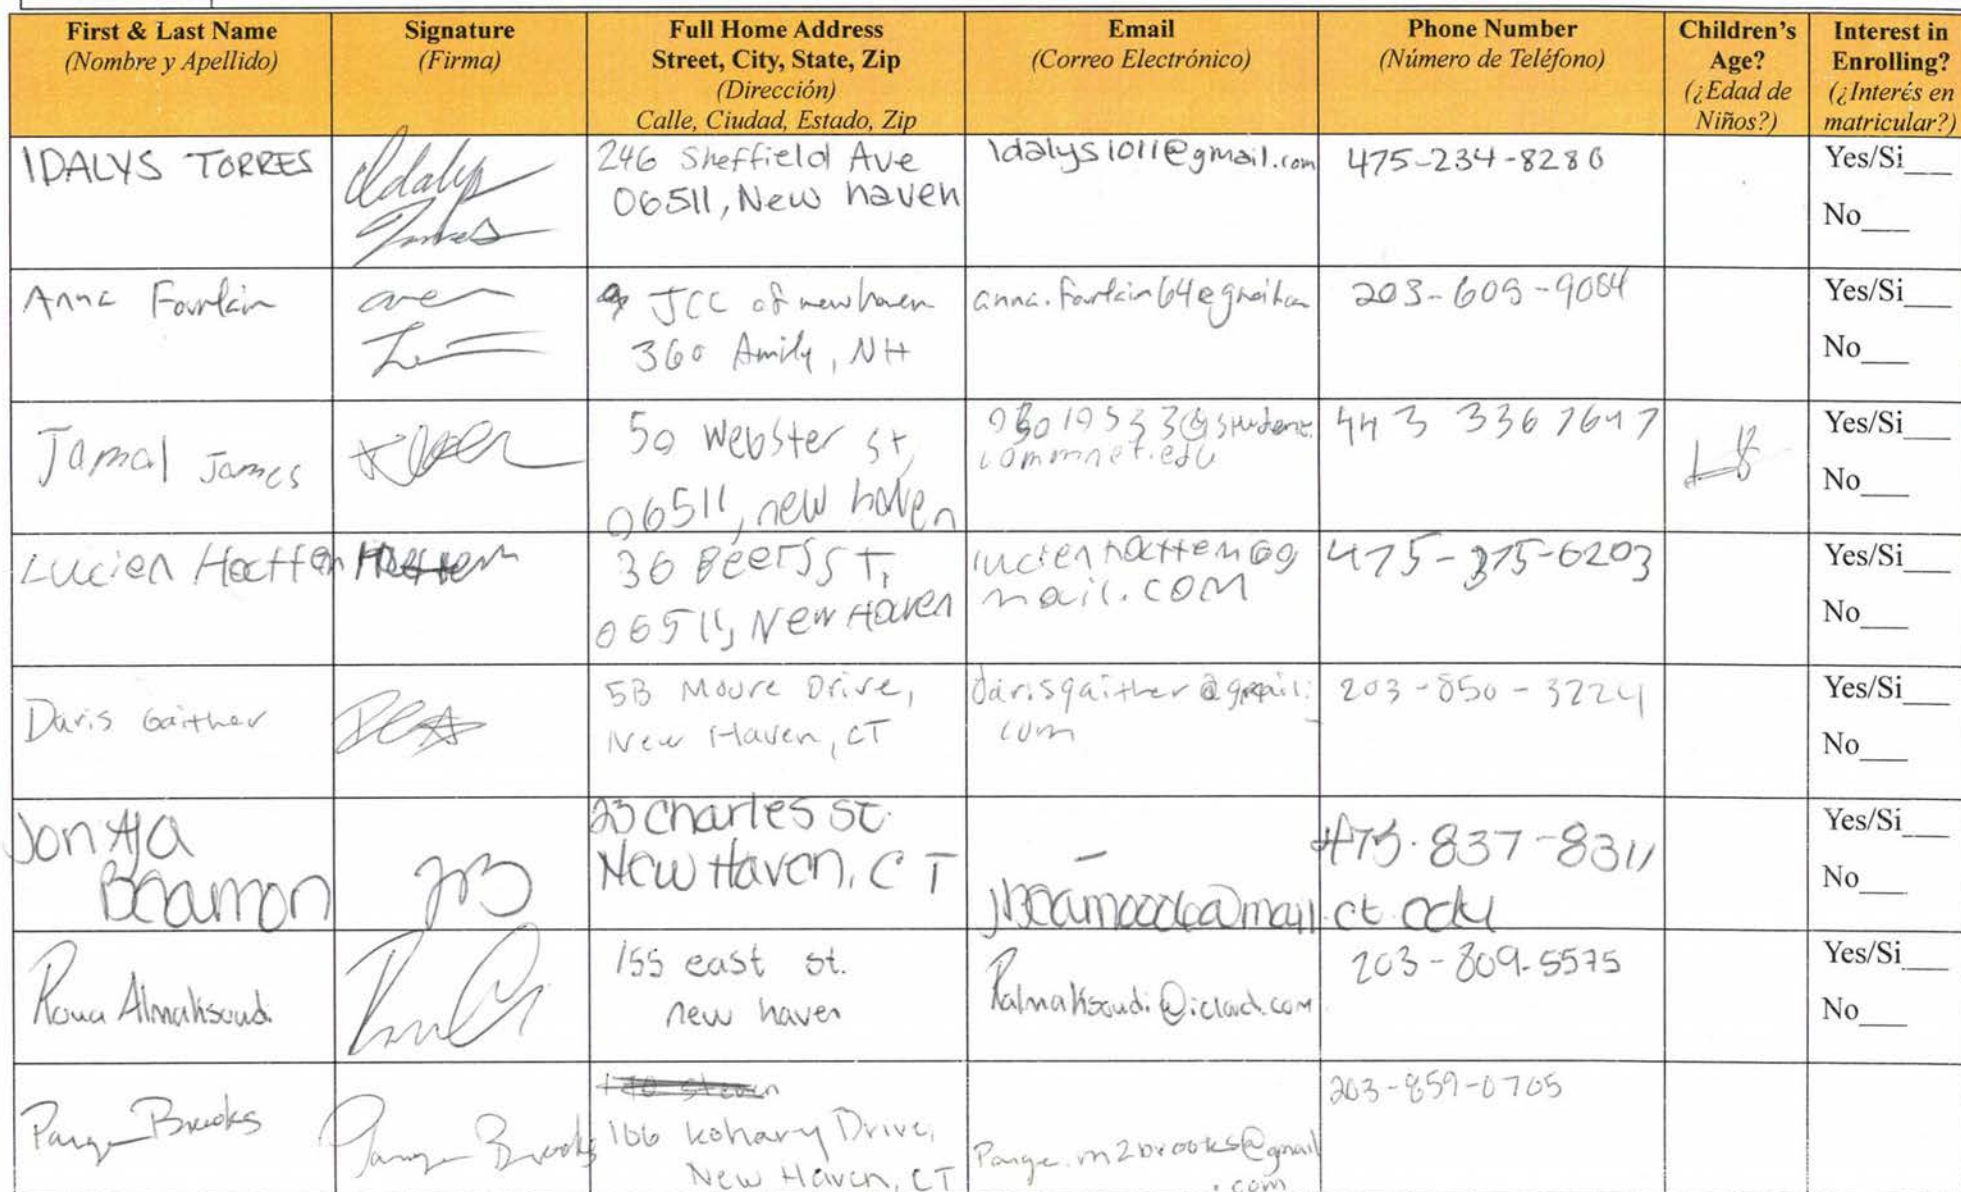 First & Last Name
(Nombre y Apellido)
Signature
(Firma)
Full Home Address
Street, City, State, Zip
(Dirección)
Calle, Ciudad, Estado, Zip
Email
(Correo Electrónico)
Phone Number
(Número de Teléfono)
Children's
Age?
(¿Edad de
Niños?)
Interest in
Enrolling?
(¿Interés en
matricular?)
IDALYS TORRES
Idalys
Torres
246 Sheffield Ave
06511, New haven
Idalys1011@gmail.com
475-234-8286
Yes/Si___
No___
Anna Fountain
JCC of new haven
360 Amity, NH
anna.fountain64@gmail.com
Yes/Si___
No___
Jamal James
50 Webster St,
06511, new haven
@student.
commnet.edu
443 336 7647
Yes/Si___
No___
Lucien Hoctten
36 Beers ST,
06511, New Haven
475-375-6203
Yes/Si___
No___
Daris Gaither
5B Moore Drive,
New Haven, CT
darisgaither@gmail.
com
203-850-3224
Yes/Si___
No___
Jontia
Beamon
JB
23 Charles St.
New Haven, CT
475-837-8311
Yes/Si___
No___
Roua Almaksoudi
155 east st.
new haven
Ralmaksoudi@icloud.com
203-809-5575
Yes/Si___
No___
Paige Brooks
Paige Brooks
166 Kohary Drive,
New Haven, CT
Paige.m2brooks@gmail
.com
203-859-0705